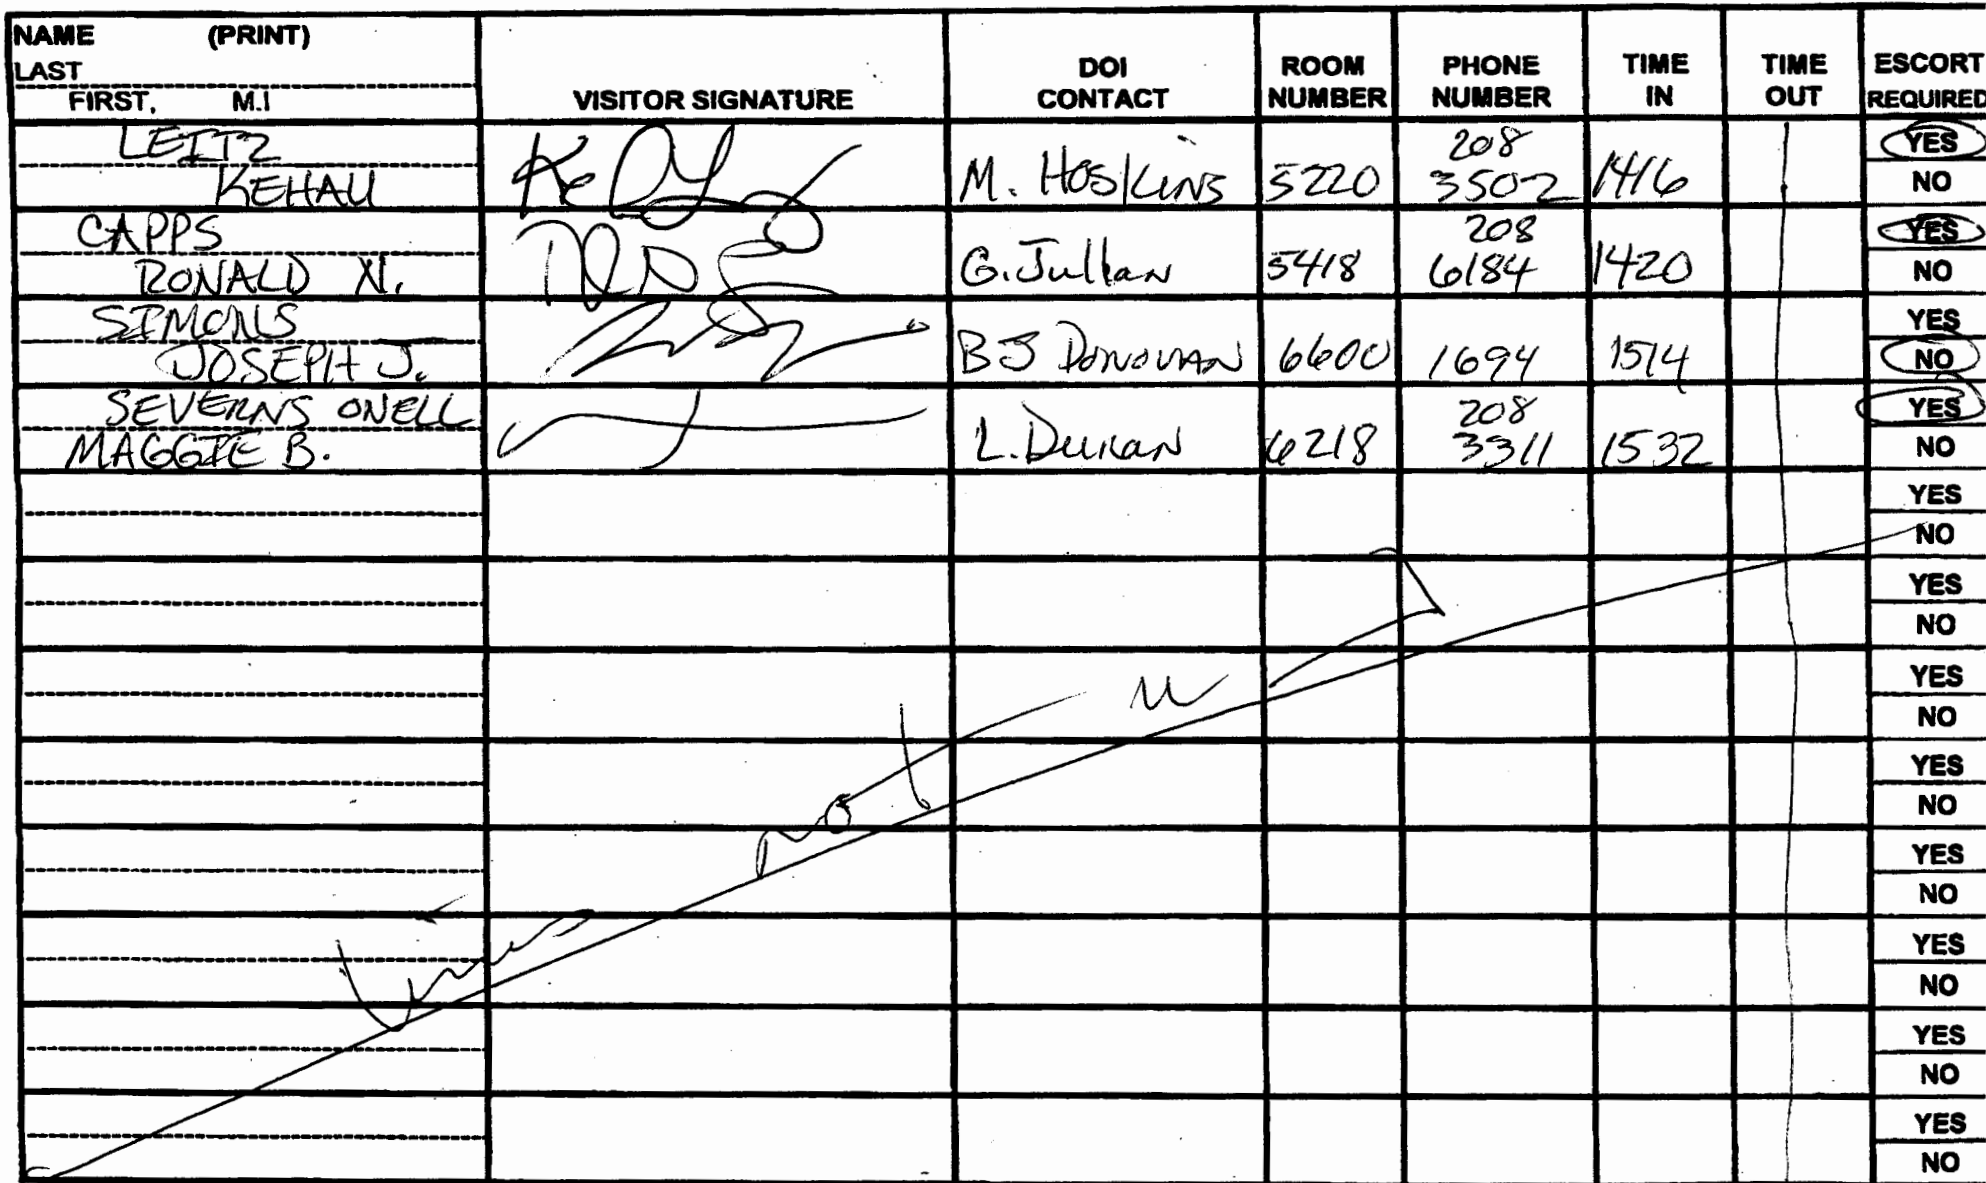 NAME (PRINT)
LAST
FIRST, M.I
VISITOR SIGNATURE
DOI
CONTACT
ROOM
NUMBER
PHONE
NUMBER
TIME
IN
TIME
OUT
ESCORT
REQUIRED
LEITZ
KEHAU
M. HOSKINS
5220
208
3502
1416
YES
NO
CAPPS
RONALD N.
G. Jullan
5418
208
6184
1420
YES
NO
SIMONS
JOSEPH J.
BJ DONOVAN
6600
1694
1514
YES
NO
SEVERNS ONELL
MAGGIE B.
L. Duran
6218
208
3311
1532
YES
NO
YES
NO
YES
NO
YES
NO
YES
NO
YES
NO
YES
NO
YES
NO
YES
NO